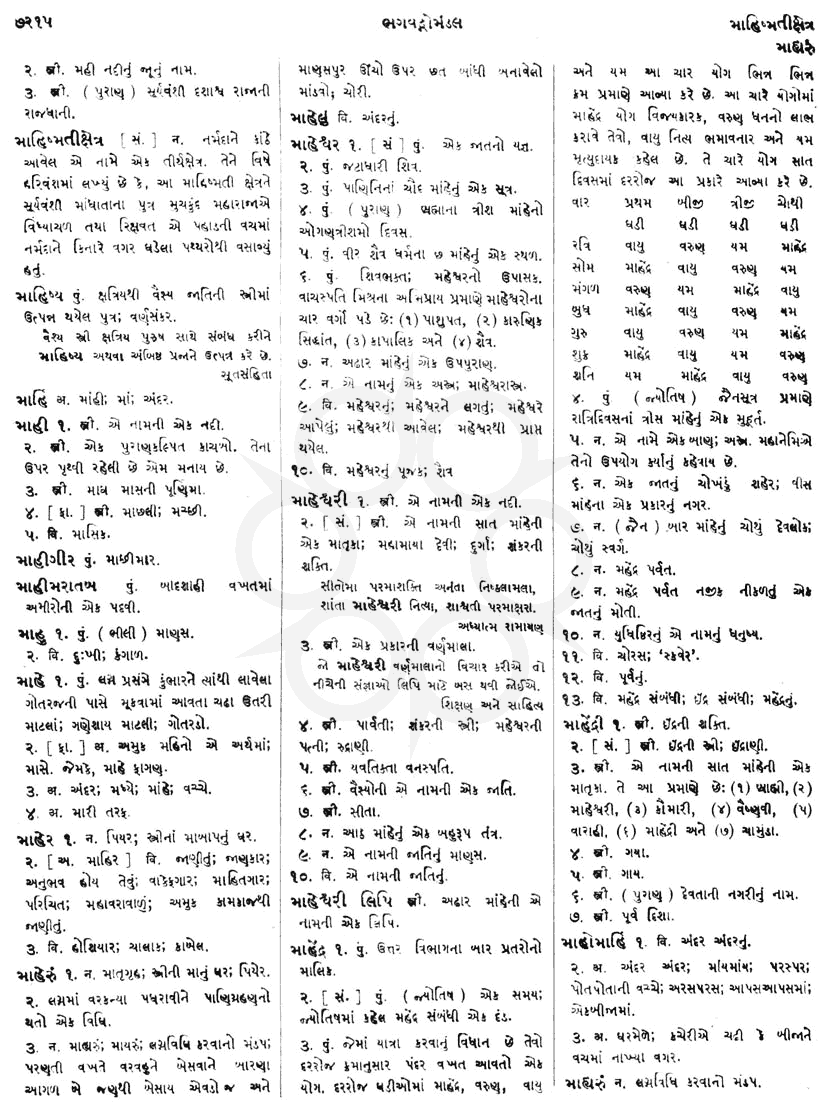 ૭૨૧૫
ભગવદ્ગોમંડલ
માહિષ્મતીક્ષેત્ર
માહ્યરું
૨. સ્ત્રી. મહી નદીનું જૂનું નામ.
૩. સ્ત્રી. ( પુરાણ ) સૂર્યવંશી દશાશ્વ રાજાની
રાજધાની.
માહિષ્મતીક્ષેત્ર [ સં. ] ન. નર્મદાને કાંઠે
આવેલ એ નામે એક તીર્થક્ષેત્ર. તેને વિષે
હરિવંશમાં લખ્યું છે કે, આ માહિષ્મતી ક્ષેત્રને
સૂર્યવંશી માંધાતાના પુત્ર મુચકુંદ મહારાજાએ
વિંધ્યાચળ તથા રિક્ષવત એ પહાડની વચમાં
નર્મદાને કિનારે વગર ઘડેલા પથ્થરોથી વસાવ્યું
હતું.
માહિષ્ય પું. ક્ષત્રિયથી વૈશ્ય જાતિની સ્ત્રીમાં
ઉત્પન્ન થયેલ પુત્ર; વર્ણસંકર.
વૈશ્ય સ્ત્રી ક્ષત્રિય પુરુષ સાથે સંબંધ કરીને
માહિષ્ય અથવા અંબિષ્ઠ પ્રજાને ઉત્પન્ન કરે છે.
સૂતસંહિતા
માહિં અ. માંહી; માં; અંદર.
માહી ૧. સ્ત્રી. એ નામની એક નદી.
૨. સ્ત્રી. એક પુરાણકલ્પિત કાચબો. તેના
ઉપર પૃથ્વી રહેલી છે એમ મનાય છે.
૩. સ્ત્રી. માઘ માસની પૂર્ણિમા.
૪. [ ફા. ] સ્ત્રી. માછલી; મચ્છી.
૫. વિ. માસિક.
માહીગીર પું. માછીમાર.
માહીમરાતબ પું. બાદશાહી વખતમાં
અમીરોની એક પદવી.
માહુ ૧. પું. ( ભીલી ) માણસ.
૨. વિ. દુઃખી; કંગાળ.
માહે ૧. પું. લગ્ન પ્રસંગે કુંભારને ત્યાંથી લાવેલા
ગોતરજની પાસે મૂકવામાં આવતા ચઢા ઉતરી
માટલાં; ગણેશાય માટલી; ગોતરડો.
૨. [ ફા. ] અ. અમુક મહિનો એ અર્થમાં;
માસે. જેમકે, માહે ફાગણ.
૩. અ. અંદર; મધ્યે; માંહે; વચ્ચે.
૪. અ. મારી તરફ.
માહેર ૧. ન. પિયર; સ્ત્રીનાં માબાપનું ઘર.
૨. [ અ. માહિર ] વિ. જાણીતું; જાણકાર;
અનુભવ હોય તેવું; વાકેફગાર; માહિતગાર;
પરિચિત; મહાવરાવાળું; અમુક કામકાજથી
જાણીતું.
૩. વિ. હોશિયાર; ચાલાક; કાબેલ.
માહેરું ૧. ન. માતૃગૃહ; સ્ત્રીની માનું ઘર; પિયેર.
૨. લગ્નમાં વરકન્યા પધરાવીને પાણિગ્રહણનો
થતો એક વિધિ.
૩. ન. માહ્યરું; માયરું; લગ્નવિધિ કરવાનો મંડપ;
પરણતી વખતે વરવહુને બેસવાને બારણા
આગળ બે જણથી બેસાય એવડો જ અને
માણસપુર ઊંચો ઉપર છત બાંધી બનાવેલો
માંડવો; ચોરી.
માહેલું વિ. અંદરનું.
માહેશ્વર ૧. [ સં ] પું. એક જાતનો યજ્ઞ.
૨. પું. જટાધારી શિવ.
૩. પું. પાણિનિનાં ચૌદ માંહેનું એક સૂત્ર.
૪. પું. ( પુરાણ ) બ્રહ્માના ત્રીશ માંહેનો
ઓગણત્રીશમો દિવસ.
૫. પું. વીર શૈવ ધર્મના છ માંહેનું એક સ્થળ.
૬. પું. શિવભક્ત; મહેશ્વરનો ઉપાસક.
વાચસ્પતિ મિશ્રના અભિપ્રાય પ્રમાણે માહેશ્વરોના
ચાર વર્ગો પડે છેઃ (૧) પાશુપત, (૨) કારુણિક
સિદ્ધાંત, (૩) કાપાલિક અને (૪) શૈવ.
૭. ન. અઢાર માંહેનું એક ઉપપુરાણ.
૮. ન. એ નામનું એક અસ્ત્ર; માહેશ્વરાસ્ત્ર.
૯. વિ. મહેશ્વરનું; મહેશ્વરને લગતું; મહેશ્વરે
આપેલું; મહેશ્વરથી આવેલ; મહેશ્વરથી પ્રાપ્ત
થયેલ.
૧૦. વિ. મહેશ્વરનું પૂજક; શૈવ
માહેશ્વરી ૧. સ્ત્રી. એ નામની એક નદી.
૨. [ સં. ] સ્ત્રી. એ નામની સાત માંહેની
એક માતૃકા; મહામાયા દેવી; દુર્ગા; શંકરની
શક્તિ.
સીતોમા પરમાશક્તિ અનંતા નિષ્કલામલા,
શાંતા માહેશ્વરી નિત્યા, શાશ્વતી પરમાક્ષરા.
અધ્યાત્મ રામાયણ
૩. સ્ત્રી. એક પ્રકારની વર્ણમાલા.
જો માહેશ્વરી વર્ણમાલાનો વિચાર કરીએ તો
નીચેની સંજ્ઞાઓ લિપિ માટે બસ થવી જોઈએ.
શિક્ષણ અને સાહિત્ય
૪. સ્ત્રી. પાર્વતી; શંકરની સ્ત્રી; મહેશ્વરની
પત્ની; રુદ્રાણી.
૫. સ્ત્રી. યવતિક્તા વનસ્પતિ.
૬. સ્ત્રી. વૈશ્યોની એ નામની એક જાતિ.
૭. સ્ત્રી. સીતા.
૮. ન. આઠ માંહેનું એક બહુરૂપ તંત્ર.
૯. ન. એ નામની જાતિનું માણસ.
૧૦. વિ. એ નામની જાતિનું.
માહેશ્વરી લિપિ સ્ત્રી. અઢાર માંહેની એ
નામની એક લિપિ.
માહેંદ્ર ૧. પું. ઉત્તર વિભાગના બાર પ્રતરોનો
માલિક.
૨. [ સં. ] પું. ( જ્યોતિષ ) એક સમય;
જ્યોતિષમાં કહેલ મહેંદ્ર સંબંધી એક દંડ.
૩. પું. જેમાં યાત્રા કરવાનું વિધાન છે તેવો
દરરોજ ક્રમાનુસાર પંદર વખત આવતો એક
યોગ. દરરોજ ઘડીઓમાં માહેંદ્ર, વરુણ, વાયુ
અને યમ આ ચાર યોગ ભિન્ન ભિન્ન
ક્રમ પ્રમાણે આવ્યા કરે છે. આ ચારે યોગોમાં
માહેંદ્ર યોગ વિજયકારક, વરુણ ધનનો લાભ
કરાવે તેવો, વાયુ નિત્ય ભમાવનાર અને યમ
મૃત્યુદાયક કહેલ છે. તે ચારે યોગ સાત
દિવસમાં દરરોજ આ પ્રકારે આવ્યા કરે છે.
વાર પ્રથમ બીજી ત્રીજી ચોથી
ઘડી ઘડી ઘડી ઘડી
રવિ વાયુ વરુણ યમ માહેંદ્ર
સોમ માહેંદ્ર વાયુ વરુણ યમ
મંગળ વરુણ યમ માહેંદ્ર વાયુ
બુધ માહેંદ્ર વાયુ વરુણ યમ
ગુરુ વાયુ વરુણ યમ માહેંદ્ર
શુક્ર માહેંદ્ર વાયુ યમ વરુણ
શનિ યમ માહેંદ્ર વાયુ વરુણ
૪. પું ( જ્યોતિષ ) જૈનસૂત્ર પ્રમાણે
રાત્રિદિવસનાં ત્રીસ માંહેનું એક મુહૂર્ત.
૫. ન. એ નામે એક બાણ; અસ્ત્ર. મહાનેમિએ
તેનો ઉપયોગ કર્યાનું કહેવાય છે.
૬. ન. એક જાતનું ચોખંડું શહેર; વીસ
માંહેના એક પ્રકારનું નગર.
૭. ન. ( જૈન ) બાર માંહેનું ચોથું દેવલોક;
ચોથું સ્વર્ગ.
૮. ન. મહેંદ્ર પર્વત.
૯. ન. મહેંદ્ર પર્વત નજીક નીકળતું એક
જાતનું મોતી.
૧૦. ન. યુધિષ્ઠિરનું એ નામનું ધનુષ્ય.
૧૧. વિ. ચોરસ; ‘સ્કવેર’.
૧૨. વિ. પૂર્વનું.
૧૩. વિ. મહેંદ્ર સંબંધી; ઇંદ્ર સંબંધી; મહેંદ્રનું.
માહેંદ્રી ૧. સ્ત્રી. ઇંદ્રની શક્તિ.
૨. [ સં. ] સ્ત્રી. ઇંદ્રની સ્ત્રી; ઇંદ્રાણી.
૩. સ્ત્રી. એ નામની સાત માંહેની એક
માતૃકા. તે આ પ્રમાણે છેઃ (૧) બ્રાહ્મી, (૨)
માહેશ્વરી, (૩) કૌમારી, (૪) વૈષ્ણવી, (૫)
વારાહી, (૬) માહેંદ્રી અને (૭) ચામુંડા.
૪. સ્ત્રી. ગયા.
૫. સ્ત્રી. ગાય.
૬. સ્ત્રી. ( પુરાણ ) દેવતાની નગરીનું નામ.
૭. સ્ત્રી. પૂર્વ દિશા.
માહોમાહિં ૧. વિ. અંદર અંદરનું.
૨. અ. અંદર અંદર; માંયમાંય; પરસ્પર;
પોતપોતાની વચ્ચે; અરસપરસ; આપસઆપસમાં;
એકબીજામાં.
૩. અ. ઘરમેળે; કચેરીએ ચઢી કે બીજાને
વચમાં નાખ્યા વગર.
માહ્યરું ન. લગ્નવિધિ કરવાનો મંડપ.